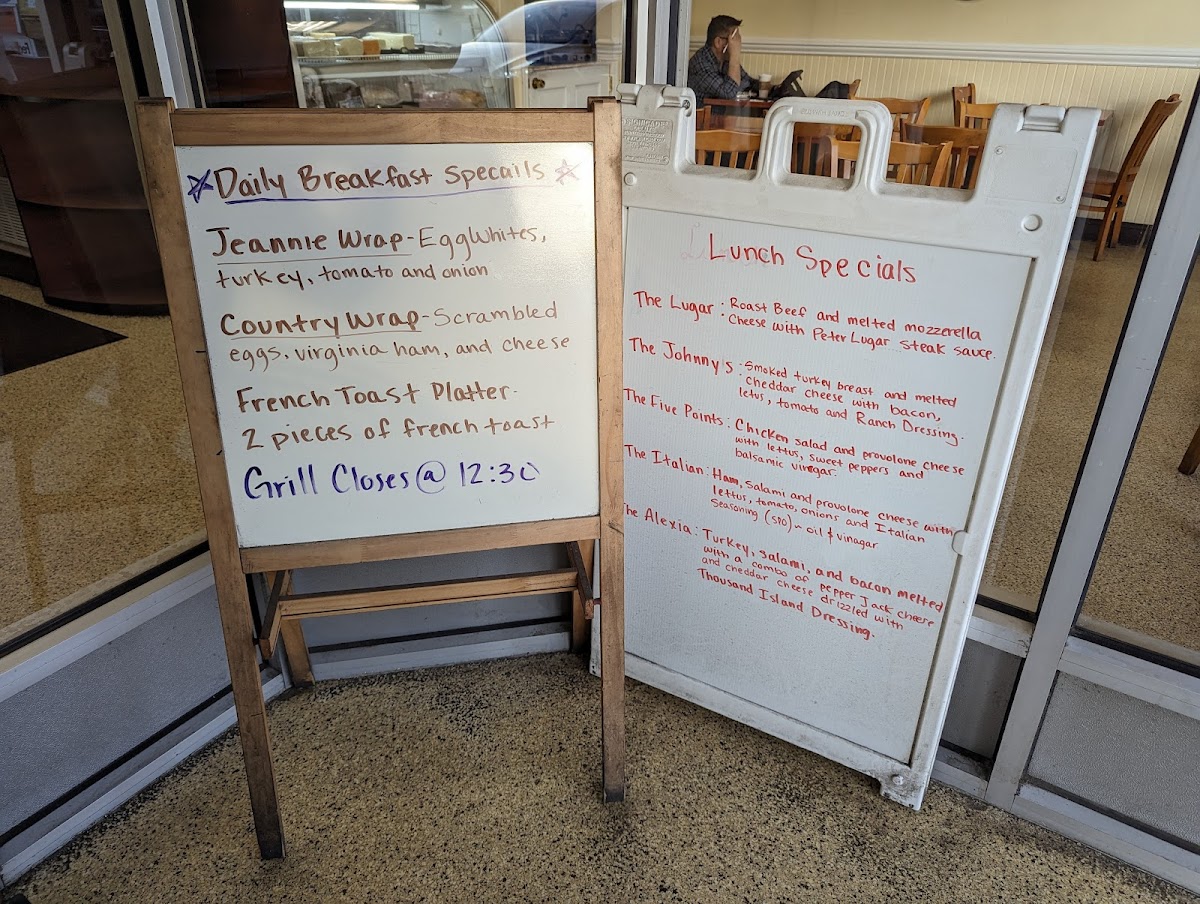 Daily Breakfast Specails
Jeannie Wrap-EggWhites,
turkey, tomato and onion
Country Wrap-Scrambled
eggs, virginia ham, and cheese
French Toast Platter-
2 pieces of french toast
Grill Closes @ 12:30
Lunch Specials
The Lugar: Roast Beef and melted mozzerella
cheese with Peter Lugar steak sauce.
The Johnny's: Smoked turkey breast and melted
cheddar cheese with bacon,
letus, tomato and Ranch Dressing.
The Five Points: Chicken salad and provolone cheese
with lettus, sweet peppers and
balsamic vinegar.
The Italian: Ham, salami and provolone cheese with
lettus, tomato, onions and Italian
Seasoning (SPO) - oil & vinagar
The Alexia: Turkey, salami, and bacon melted
with a combo of pepper Jack cheese
and cheddar cheese drizzled with
Thousand Island Dressing.